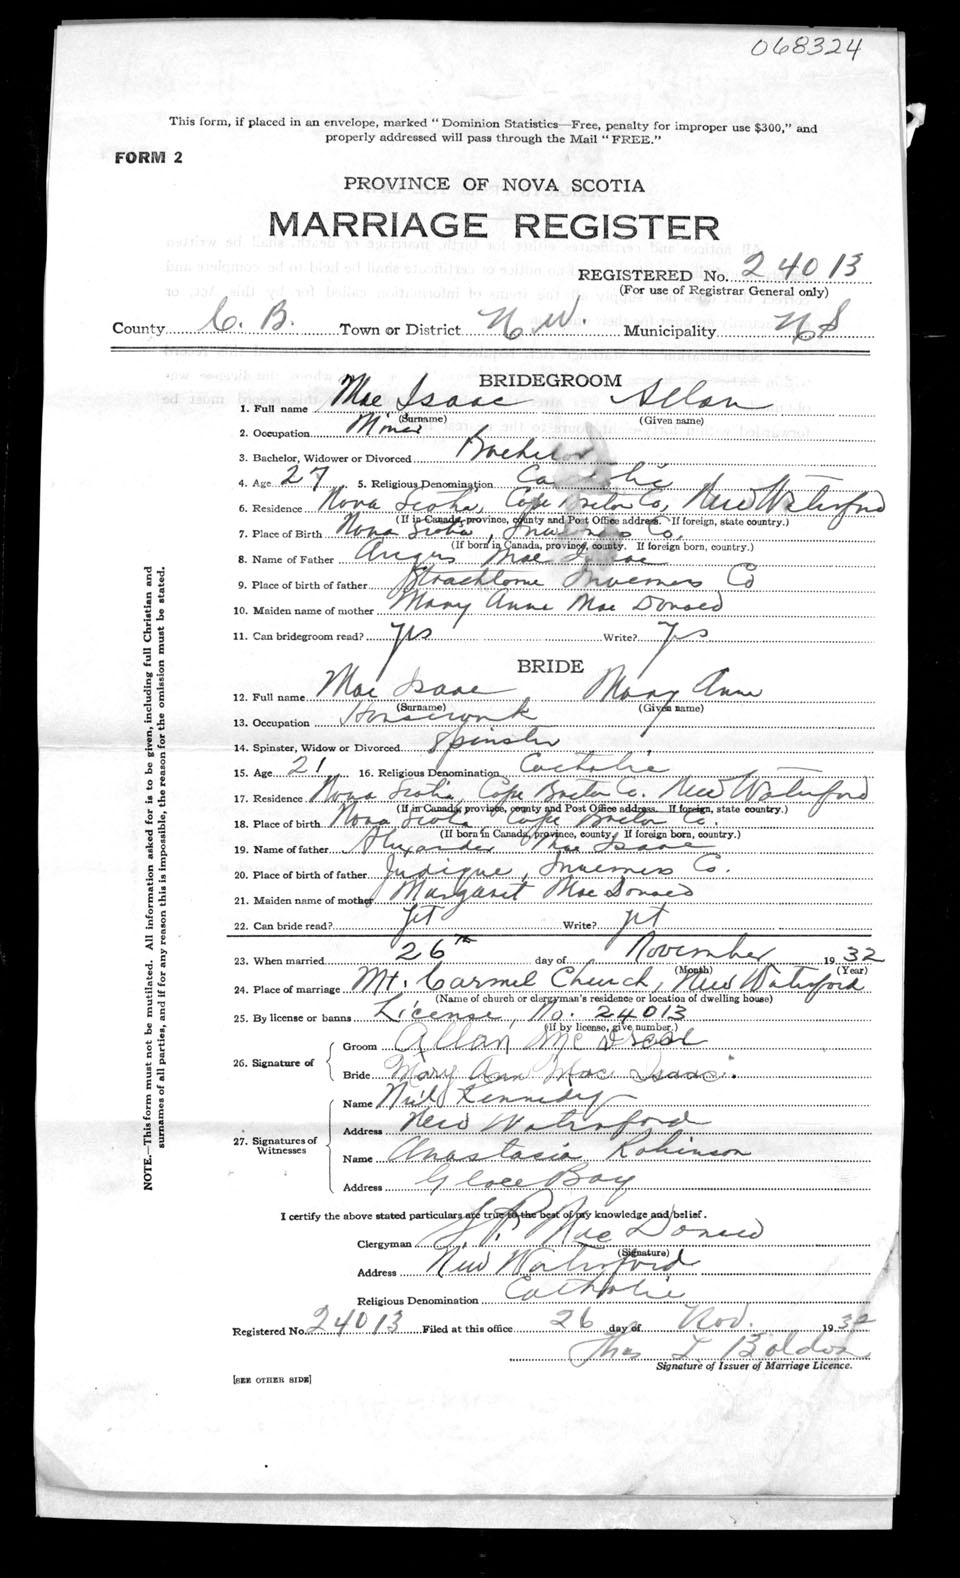 068324
This form, if placed in an envelope, marked "Dominion Statistics—Free, penalty for improper use $300," and
properly addressed will pass through the Mail "FREE."
FORM 2
PROVINCE OF NOVA SCOTIA
MARRIAGE REGISTER
REGISTERED No. 24013
(For use of Registrar General only)
County C. B. Town or District N. W. Municipality N S
BRIDEGROOM
1. Full name Mac Isaac Allan
(Surname) (Given name)
2. Occupation Miner
3. Bachelor, Widower or Divorced Bachelor
4. Age 27 5. Religious Denomination Catholic
6. Residence Nova Scotia, Cape Breton Co, New Waterford
(If in Canada, province, county and Post Office address. If foreign, state country.)
7. Place of Birth Nova Scotia, Inverness Co.
(If born in Canada, province, county. If foreign born, country.)
8. Name of Father Angus Mac Isaac
9. Place of birth of father Strathlorne Inverness Co
10. Maiden name of mother Mary Anne Mac Donald
11. Can bridegroom read? yes Write? yes
BRIDE
12. Full name Mac Isaac Mary Anne
(Surname) (Given name)
13. Occupation Housework
14. Spinster, Widow or Divorced Spinster
15. Age 21 16. Religious Denomination Catholic
17. Residence Nova Scotia, Cape Breton Co. New Waterford
(If in Canada, province, county and Post Office address. If foreign, state country.)
18. Place of birth Nova Scotia Cape Breton Co.
(If born in Canada, province, county. If foreign born, country.)
19. Name of father Alexander Mac Isaac
20. Place of birth of father Judique, Inverness Co.
21. Maiden name of mother Margaret Mac Donald
22. Can bride read? yes Write? yes
23. When married 26th day of November 1932
(Month) (Year)
24. Place of marriage Mt. Carmel Church, New Waterford
(Name of church or clergyman's residence or location of dwelling house)
25. By license or banns License, No. 24013
(If by license, give number.)
26. Signature of
Groom Allan Mc Isaac
Bride Mary Ann Mac Isaac.
27. Signatures of Witnesses
Name Neil Kennedy
Address New Waterford
Name Anastasia Robinson
Address Glace Bay
I certify the above stated particulars are true to the best of my knowledge and belief.
Clergyman J. P. Mac Donald
(Signature)
Address New Waterford
Religious Denomination Catholic
Registered No. 24013 Filed at this office 26 day of Nov. 1932
Thos L Boldon
Signature of Issuer of Marriage Licence.
[SEE OTHER SIDE]
NOTE.—This form must not be mutilated. All information asked for is to be given, including full Christian and
surnames of all parties, and if for any reason this is impossible, the reason for the omission must be stated.